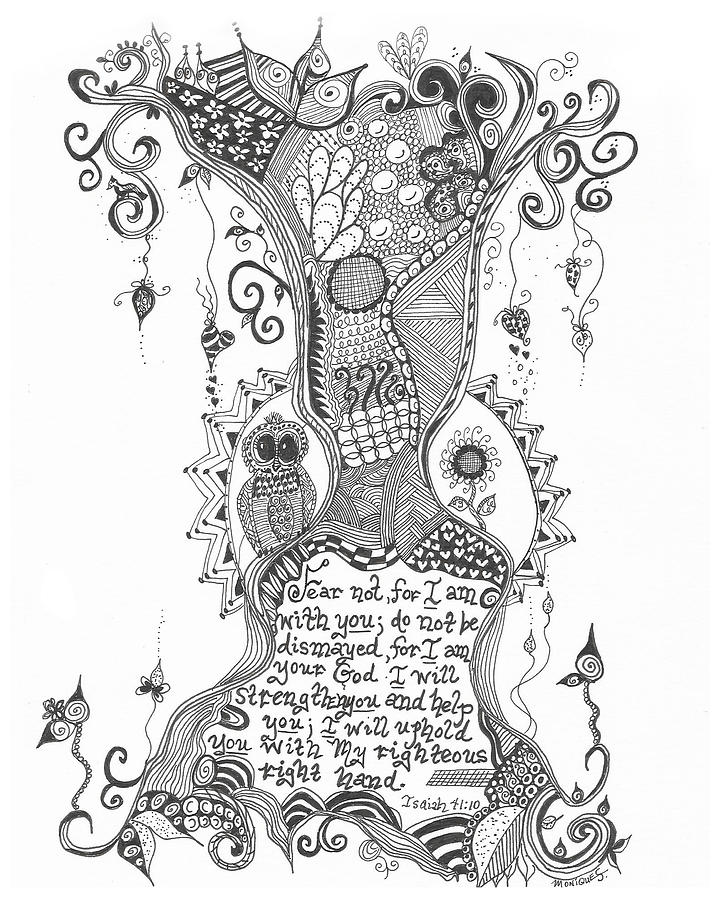 Fear not, for I am
with you; do not be
dismayed, for I am
your God. I will
strengthen you and help
you; I will uphold
you with My righteous
right hand.
Isaiah 41:10
MONIQUE S.